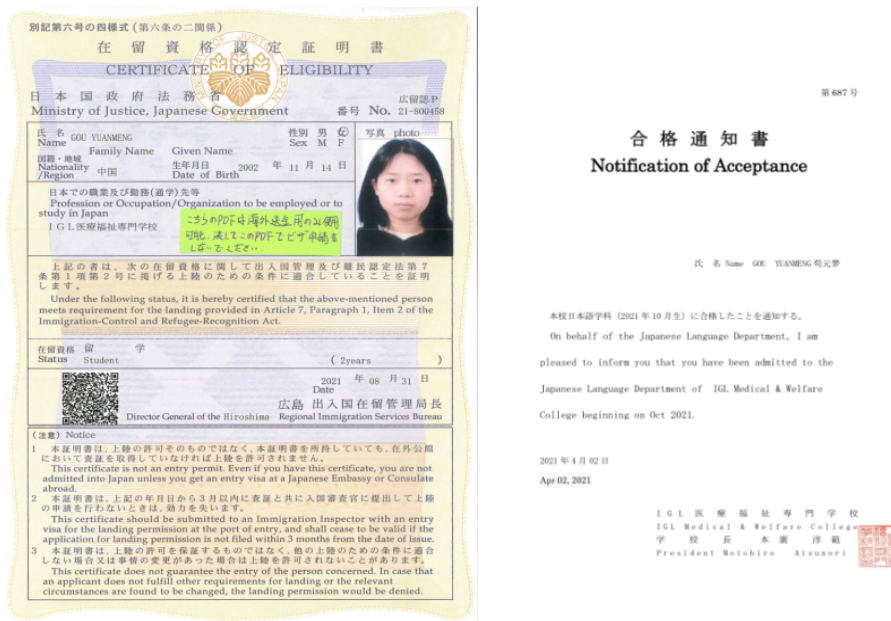 別記第六号の四様式(第六条の二関係)
在留資格認定証明書
CERTIFICATE OF ELIGIBILITY
日本国政府法務省
広留認P
Ministry of Justice, Japanese Government
番号 No. 21-800458
氏名 GOU YUANMENG
Name Family Name Given Name
性別 男 女
Sex M F
写真 photo
国籍・地域
Nationality
/Region
中国
生年月日 2002 年 11 月 14 日
Date of Birth
日本での職業及び勤務(通学)先等
Profession or Occupation/Organization to be employed or to
study in Japan
IGL医療福祉専門学校
こちらのPDFは海外送金用のみ使用
可能、決してこのPDFでビザ申請を
しないでください。
上記の者は、次の在留資格に関して出入国管理及び難民認定法第7
条第1項第2号に掲げる上陸のための条件に適合していることを証明
します。
Under the following status, it is hereby certified that the above-mentioned person
meets requirement for the landing provided in Article 7, Paragraph 1, Item 2 of the
Immigration-Control and Refugee-Recognition Act.
在留資格 留学
Status Student
( 2years )
2021 年 08 月 31 日
Date
広島 出入国在留管理局長
Director General of the Hiroshima Regional Immigration Services Bureau
(注意) Notice
1 本証明書は、上陸の許可そのものではなく、本証明書を所持していても、在外公館
において査証を取得していなければ上陸を許可されません。
This certificate is not an entry permit. Even if you have this certificate, you are not
admitted into Japan unless you get an entry visa at a Japanese Embassy or Consulate
abroad.
2 本証明書は、上記の年月日から3月以内に査証と共に入国審査官に提出して上陸
の申請を行わないときは、効力を失います。
This certificate should be submitted to an Immigration Inspector with an entry
visa for the landing permission at the port of entry, and shall cease to be valid if the
application for landing permission is not filed within 3 months from the date of issue.
3 本証明書は、上陸の許可を保証するものではなく、他の上陸のための条件に適合
しない場合又は事情の変更があった場合は上陸を許可されないことがあります。
This certificate does not guarantee the entry of the person concerned. In case that
an applicant does not fulfill other requirements for landing or the relevant
circumstances are found to be changed, the landing permission would be denied.
第687号
合格通知書
Notification of Acceptance
氏名 Name GOU YUANMENG 苟元夢
本校日本語学科(2021年10月生)に合格したことを通知する。
On behalf of the Japanese Language Department, I am
pleased to inform you that you have been admitted to the
Japanese Language Department of IGL Medical & Welfare
College beginning on Oct 2021.
2021年4月02日
Apr 02, 2021
IGL医療福祉専門学校
IGL Medical & Welfare College
学校長 本廣 淳範
President Motohiro Atsunori